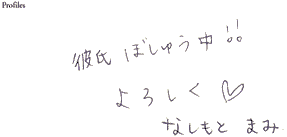 Profiles
彼氏 ぼしゅう中!!
よろしく♡
なしもと まみ